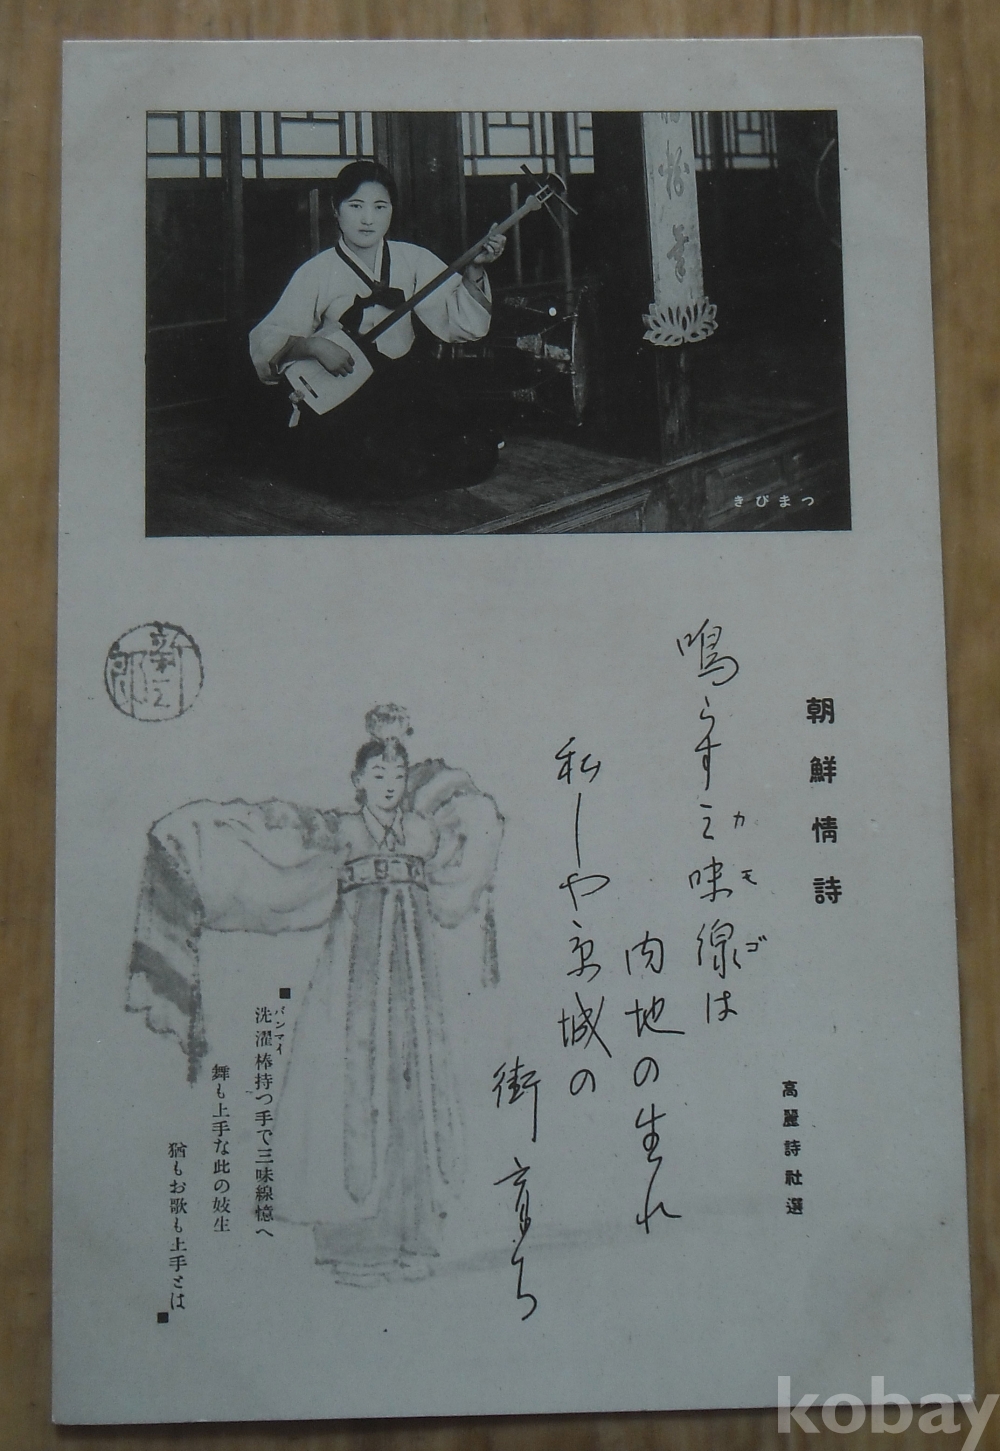 つまびき
朝鮮情詩
高麗詩社選
鳴らす三味線は
カモゴ
内地の生れ
私しや京城の
街育ち
■洗濯棒持つ手で三味線憶へ
パンマイ
舞も上手な此の妓生
猶もお歌も上手とは■
新三郎
kobay